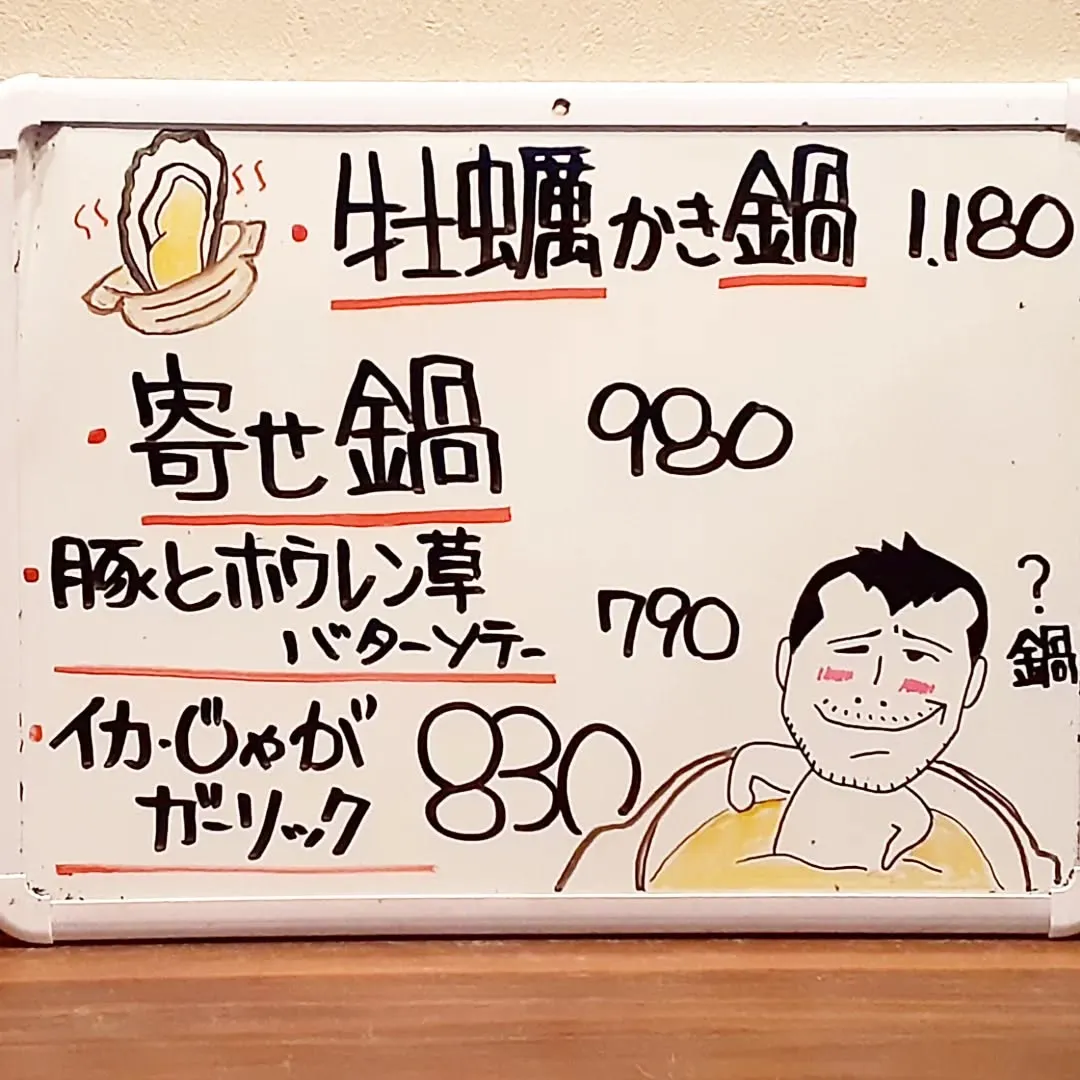 ・牡蠣かき鍋 1.180
・寄せ鍋 980
・豚とホウレン草
バターソテー 790
・イカ・じゃが
ガーリック 830
?
鍋